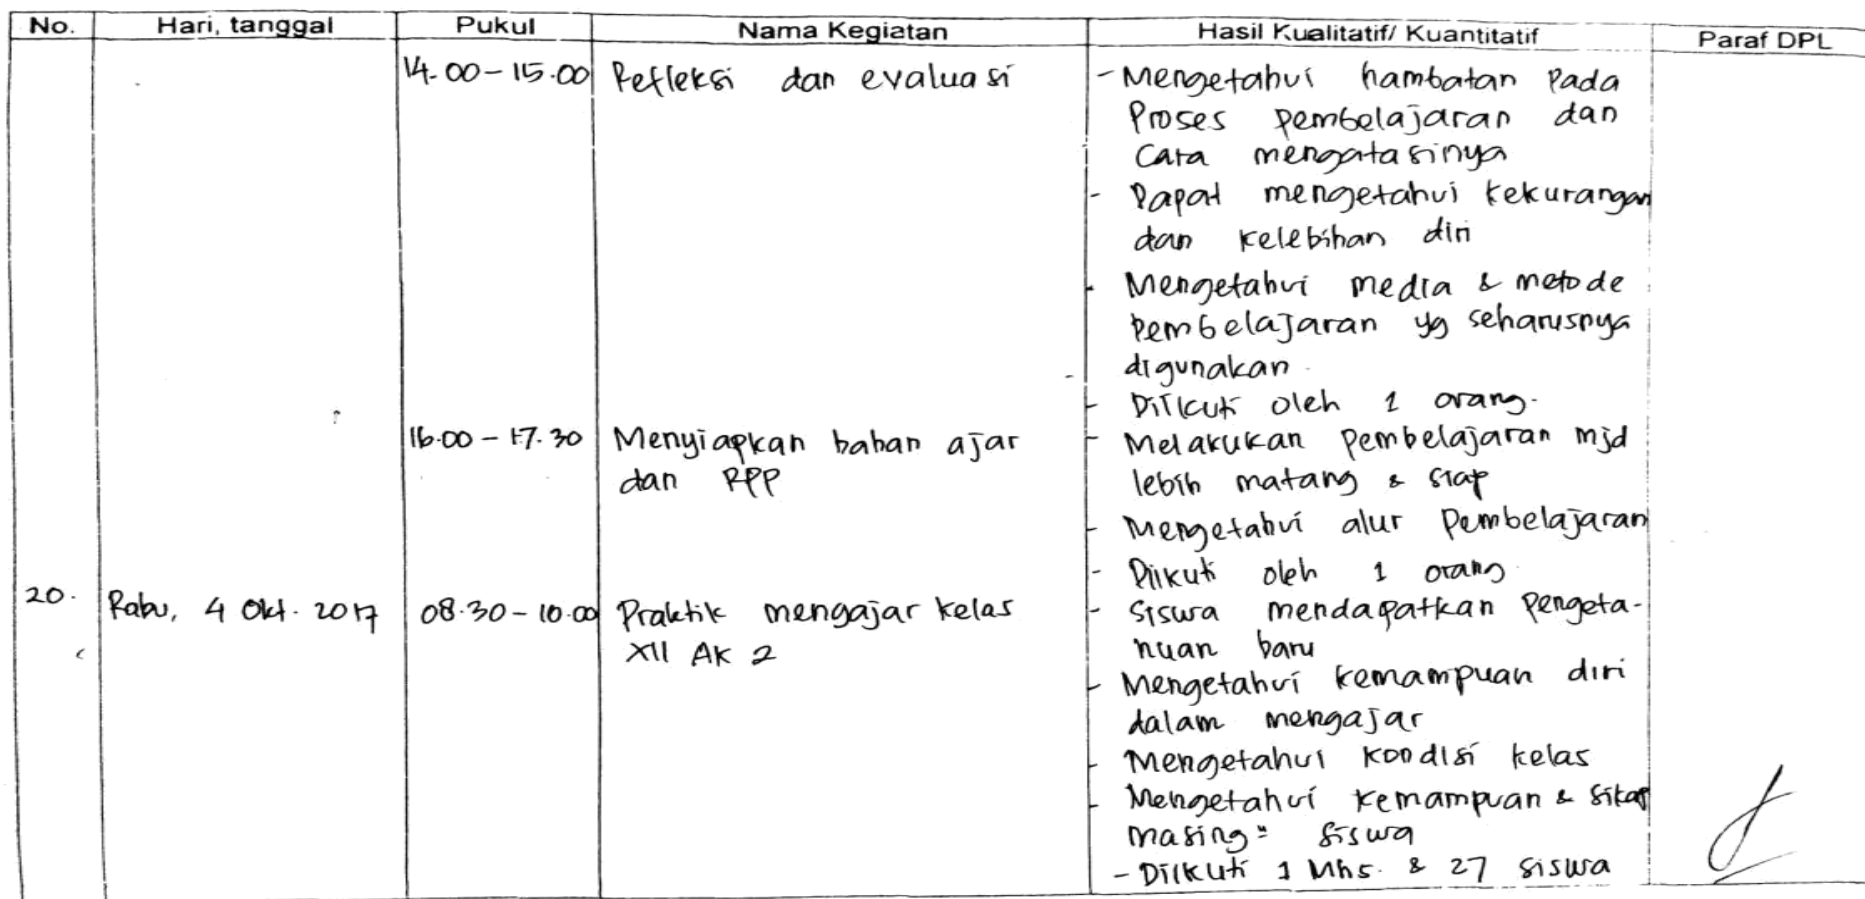 No. Hari, tanggal Pukul Nama Kegiatan Hasil Kualitatif/ Kuantitatif Paraf DPL
14.00 - 15.00 Refleksi dan evaluasi - Mengetahui hambatan pada
proses pembelajaran dan
cara mengatasinya
- Dapat mengetahui kekurangan
dan kelebihan diri
- Mengetahui media & metode
pembelajaran yg seharusnya
digunakan.
- Diikuti oleh 1 orang.
16.00 - 17.30 Menyiapkan bahan ajar - Melakukan pembelajaran mjd
dan RPP lebih matang & siap
- Mengetahui alur pembelajaran
- Diikuti oleh 1 orang.
20. Rabu, 4 Okt. 2017 08.30 - 10.00 Praktik mengajar kelas - Siswa mendapatkan pengeta-
XII AK 2 huan baru
- Mengetahui kemampuan diri
dalam mengajar
- Mengetahui kondisi kelas
- Mengetahui kemampuan & sikap
masing" siswa
- Diikuti 1 Mhs. & 27 siswa